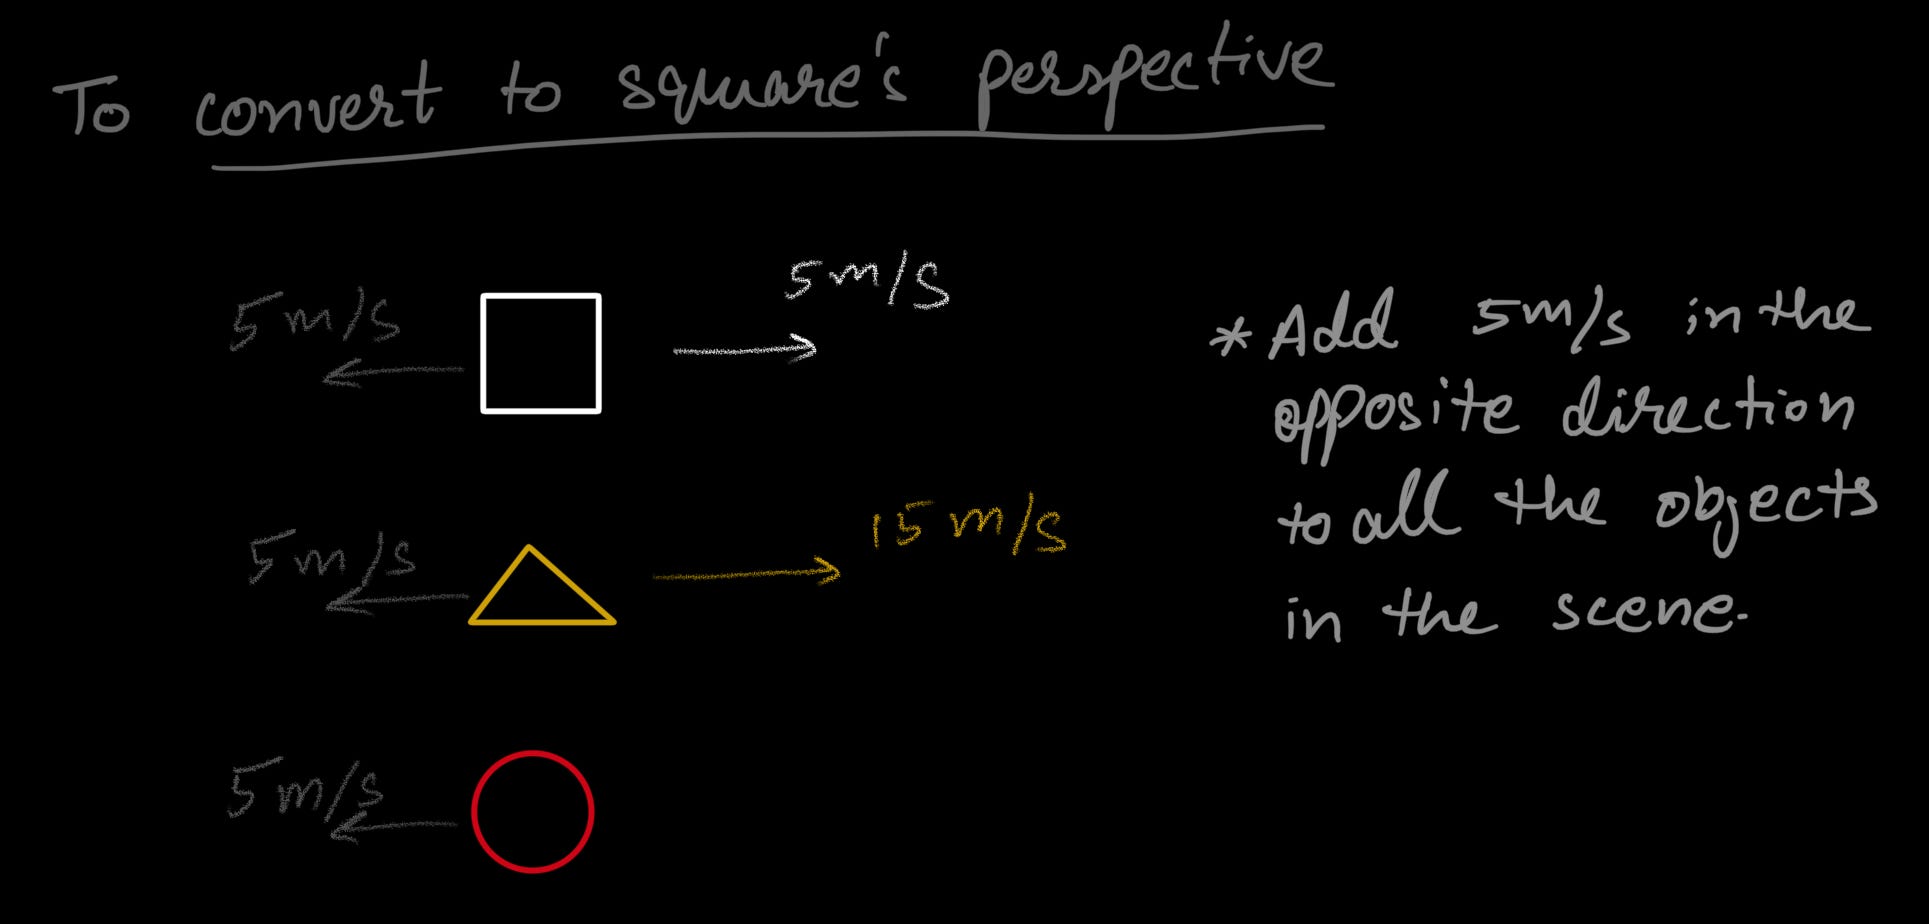 To convert to square's perspective
5m/s
5m/s
* Add 5m/s in the
opposite direction
to all the objects
in the scene.
5m/s
15 m/s
5m/s